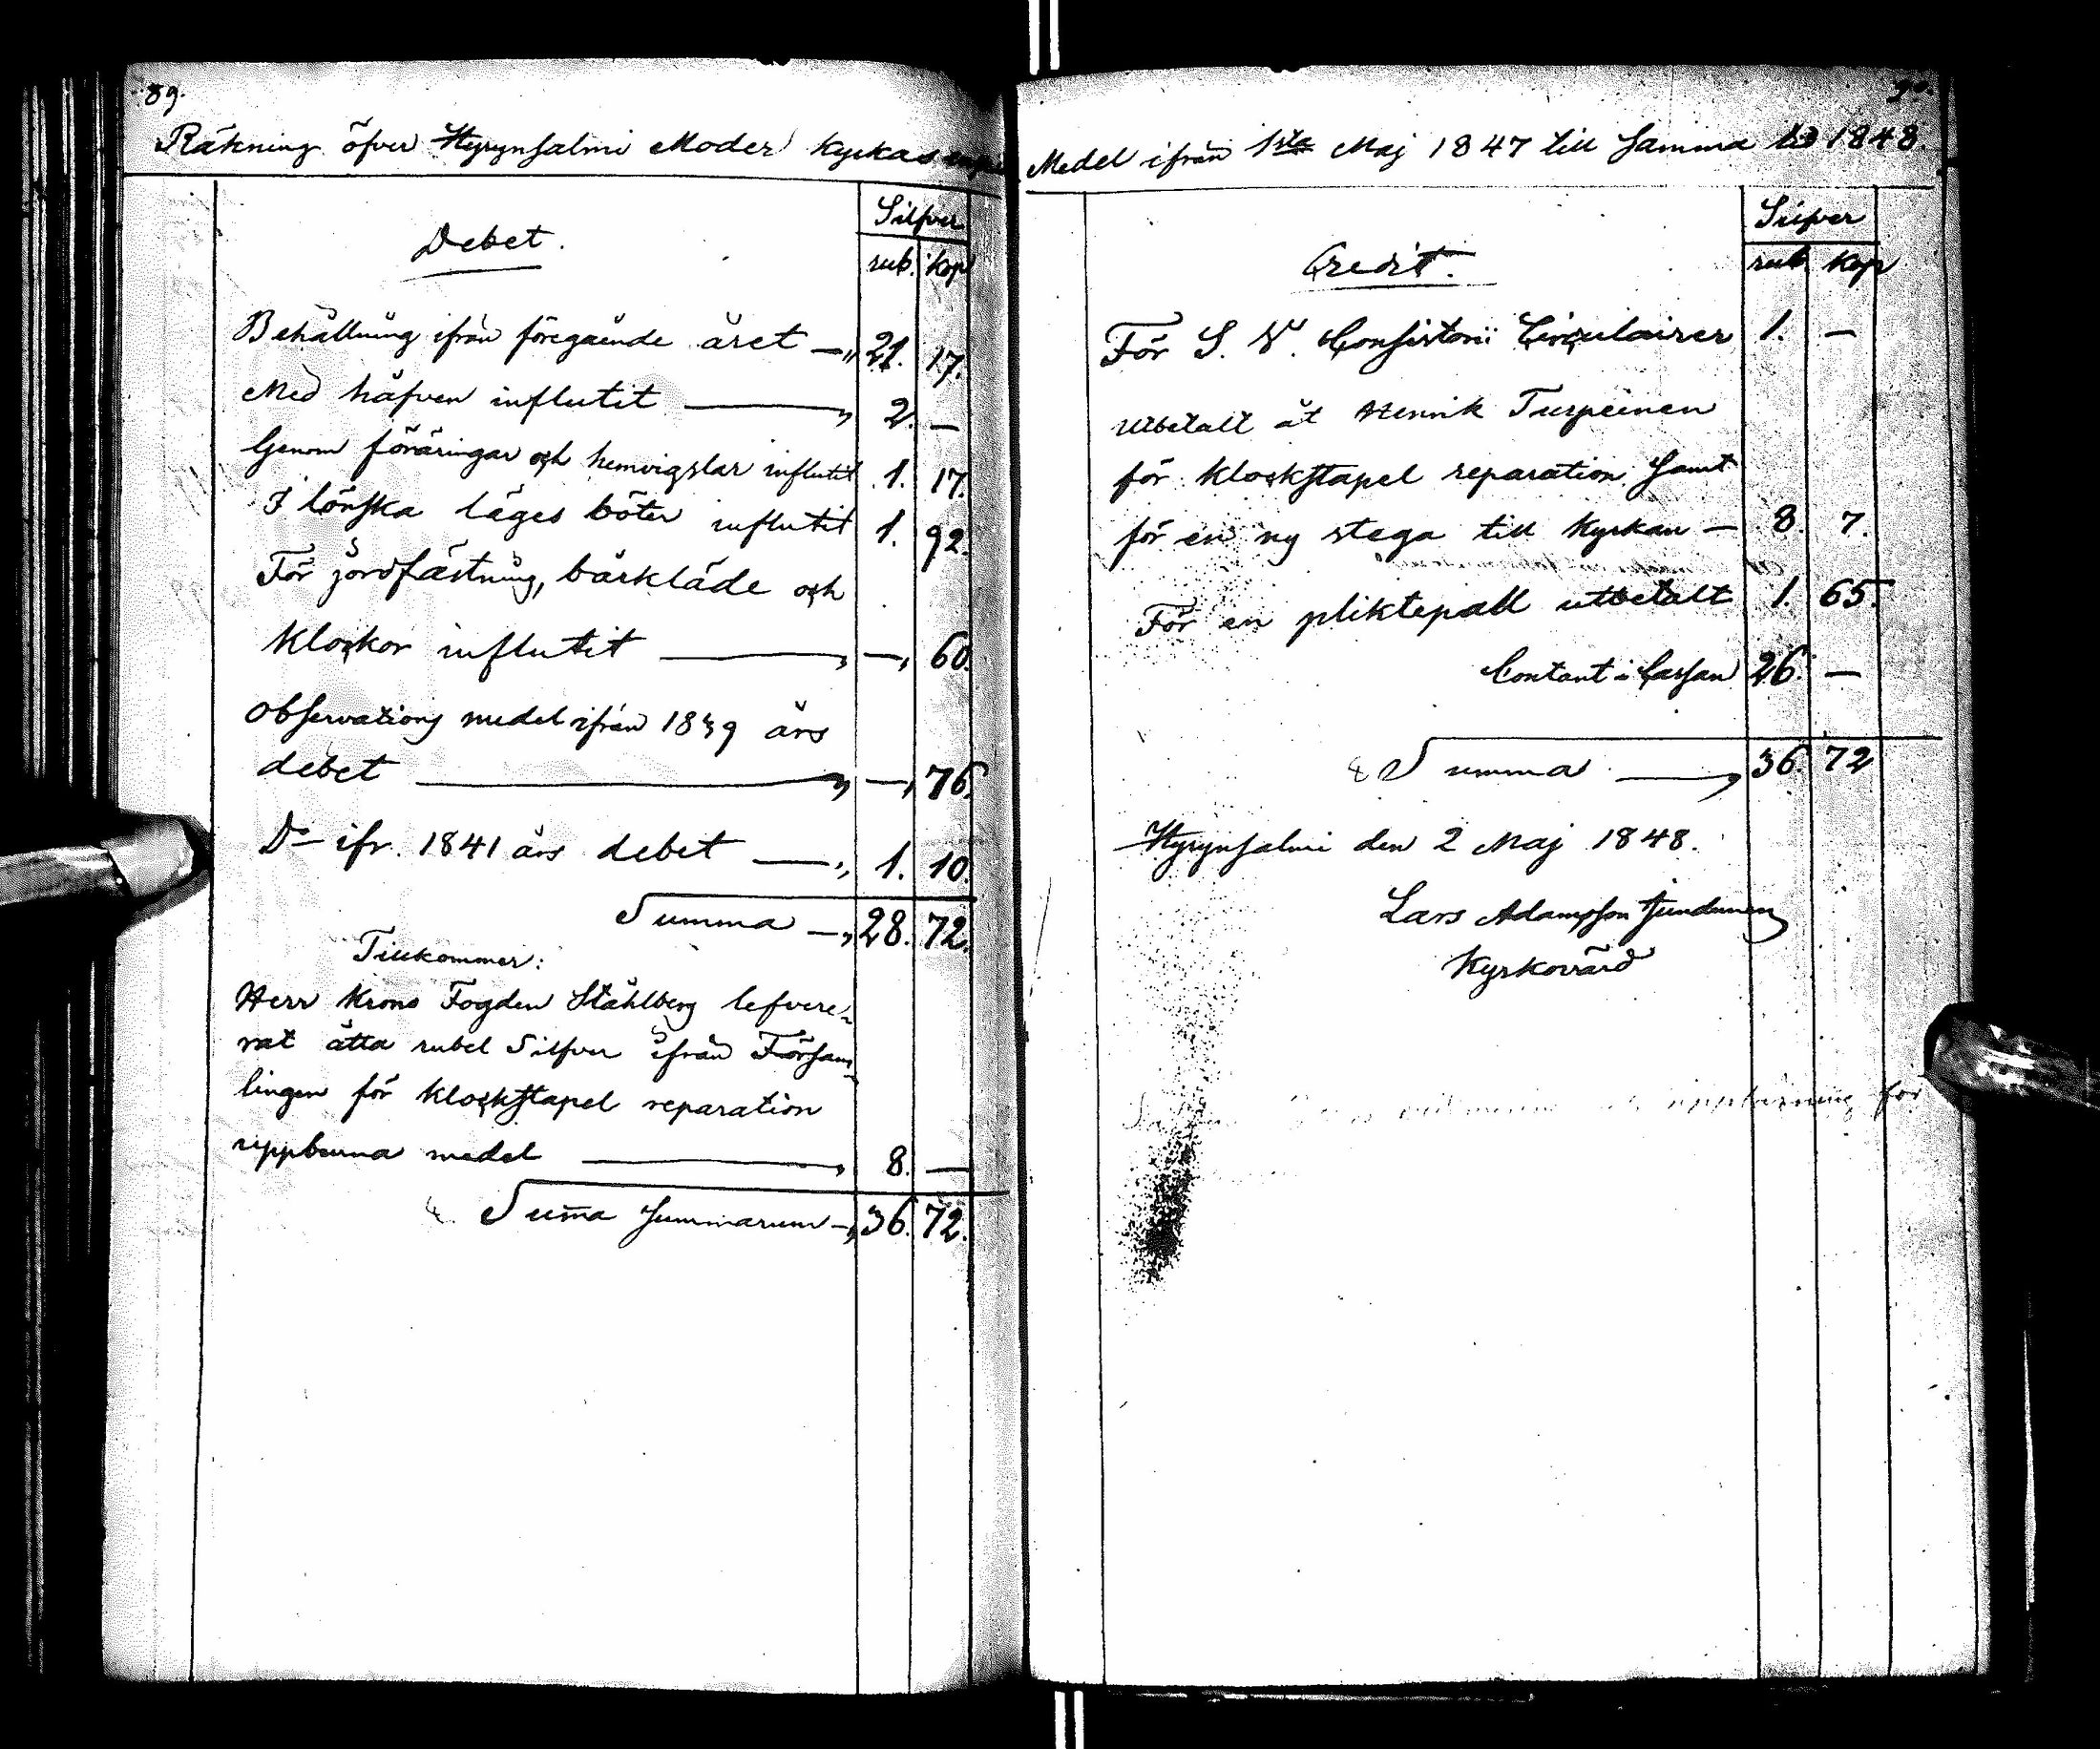 89.
Räkning öfver Hyrynsalmi Moder kyrkas
Debet.
Silfver
rub. kop
Behållning ifrån föregående året — 21. 17.
Med håfven influtit — 2. —
Genom föräringar och hemvigslar influtit 1. 17.
I lönska läges böter influtit 1. 92.
För jordfästning, bårkläde och
klockor influtit — —, 60.
Observations medel ifrån 1839 års
debet — —, 76.
Do ifr. 1841 års debet — 1. 10.
Summa — 28. 72.
Tillkommer:
Herr Krono Fogden Ståhlberg lefvere-
rat åtta rubel Silfver ifrån Försam-
lingen för klockstapel reparation
uppburna medel — 8. —
Suma Summarum — 36. 72.
90.
Medel ifrån 1sta Maj 1847 till Samma tid 1848.
Credit.
Silfver
rub kop
För S. V. Consistorii Circulairer 1. —
utbetalt åt Henrik Turpeinen
för klockstapel reparation Samt
för en ny stega till Kyrkan — 8. 7.
För en pliktepall utbetalt 1. 65.
Contant i Cassan 26. —
Summa — 36. 72
Hyrynsalmi den 2 Maj 1848.
Lars Adamsson Juntunen
Kyrkovärd
för